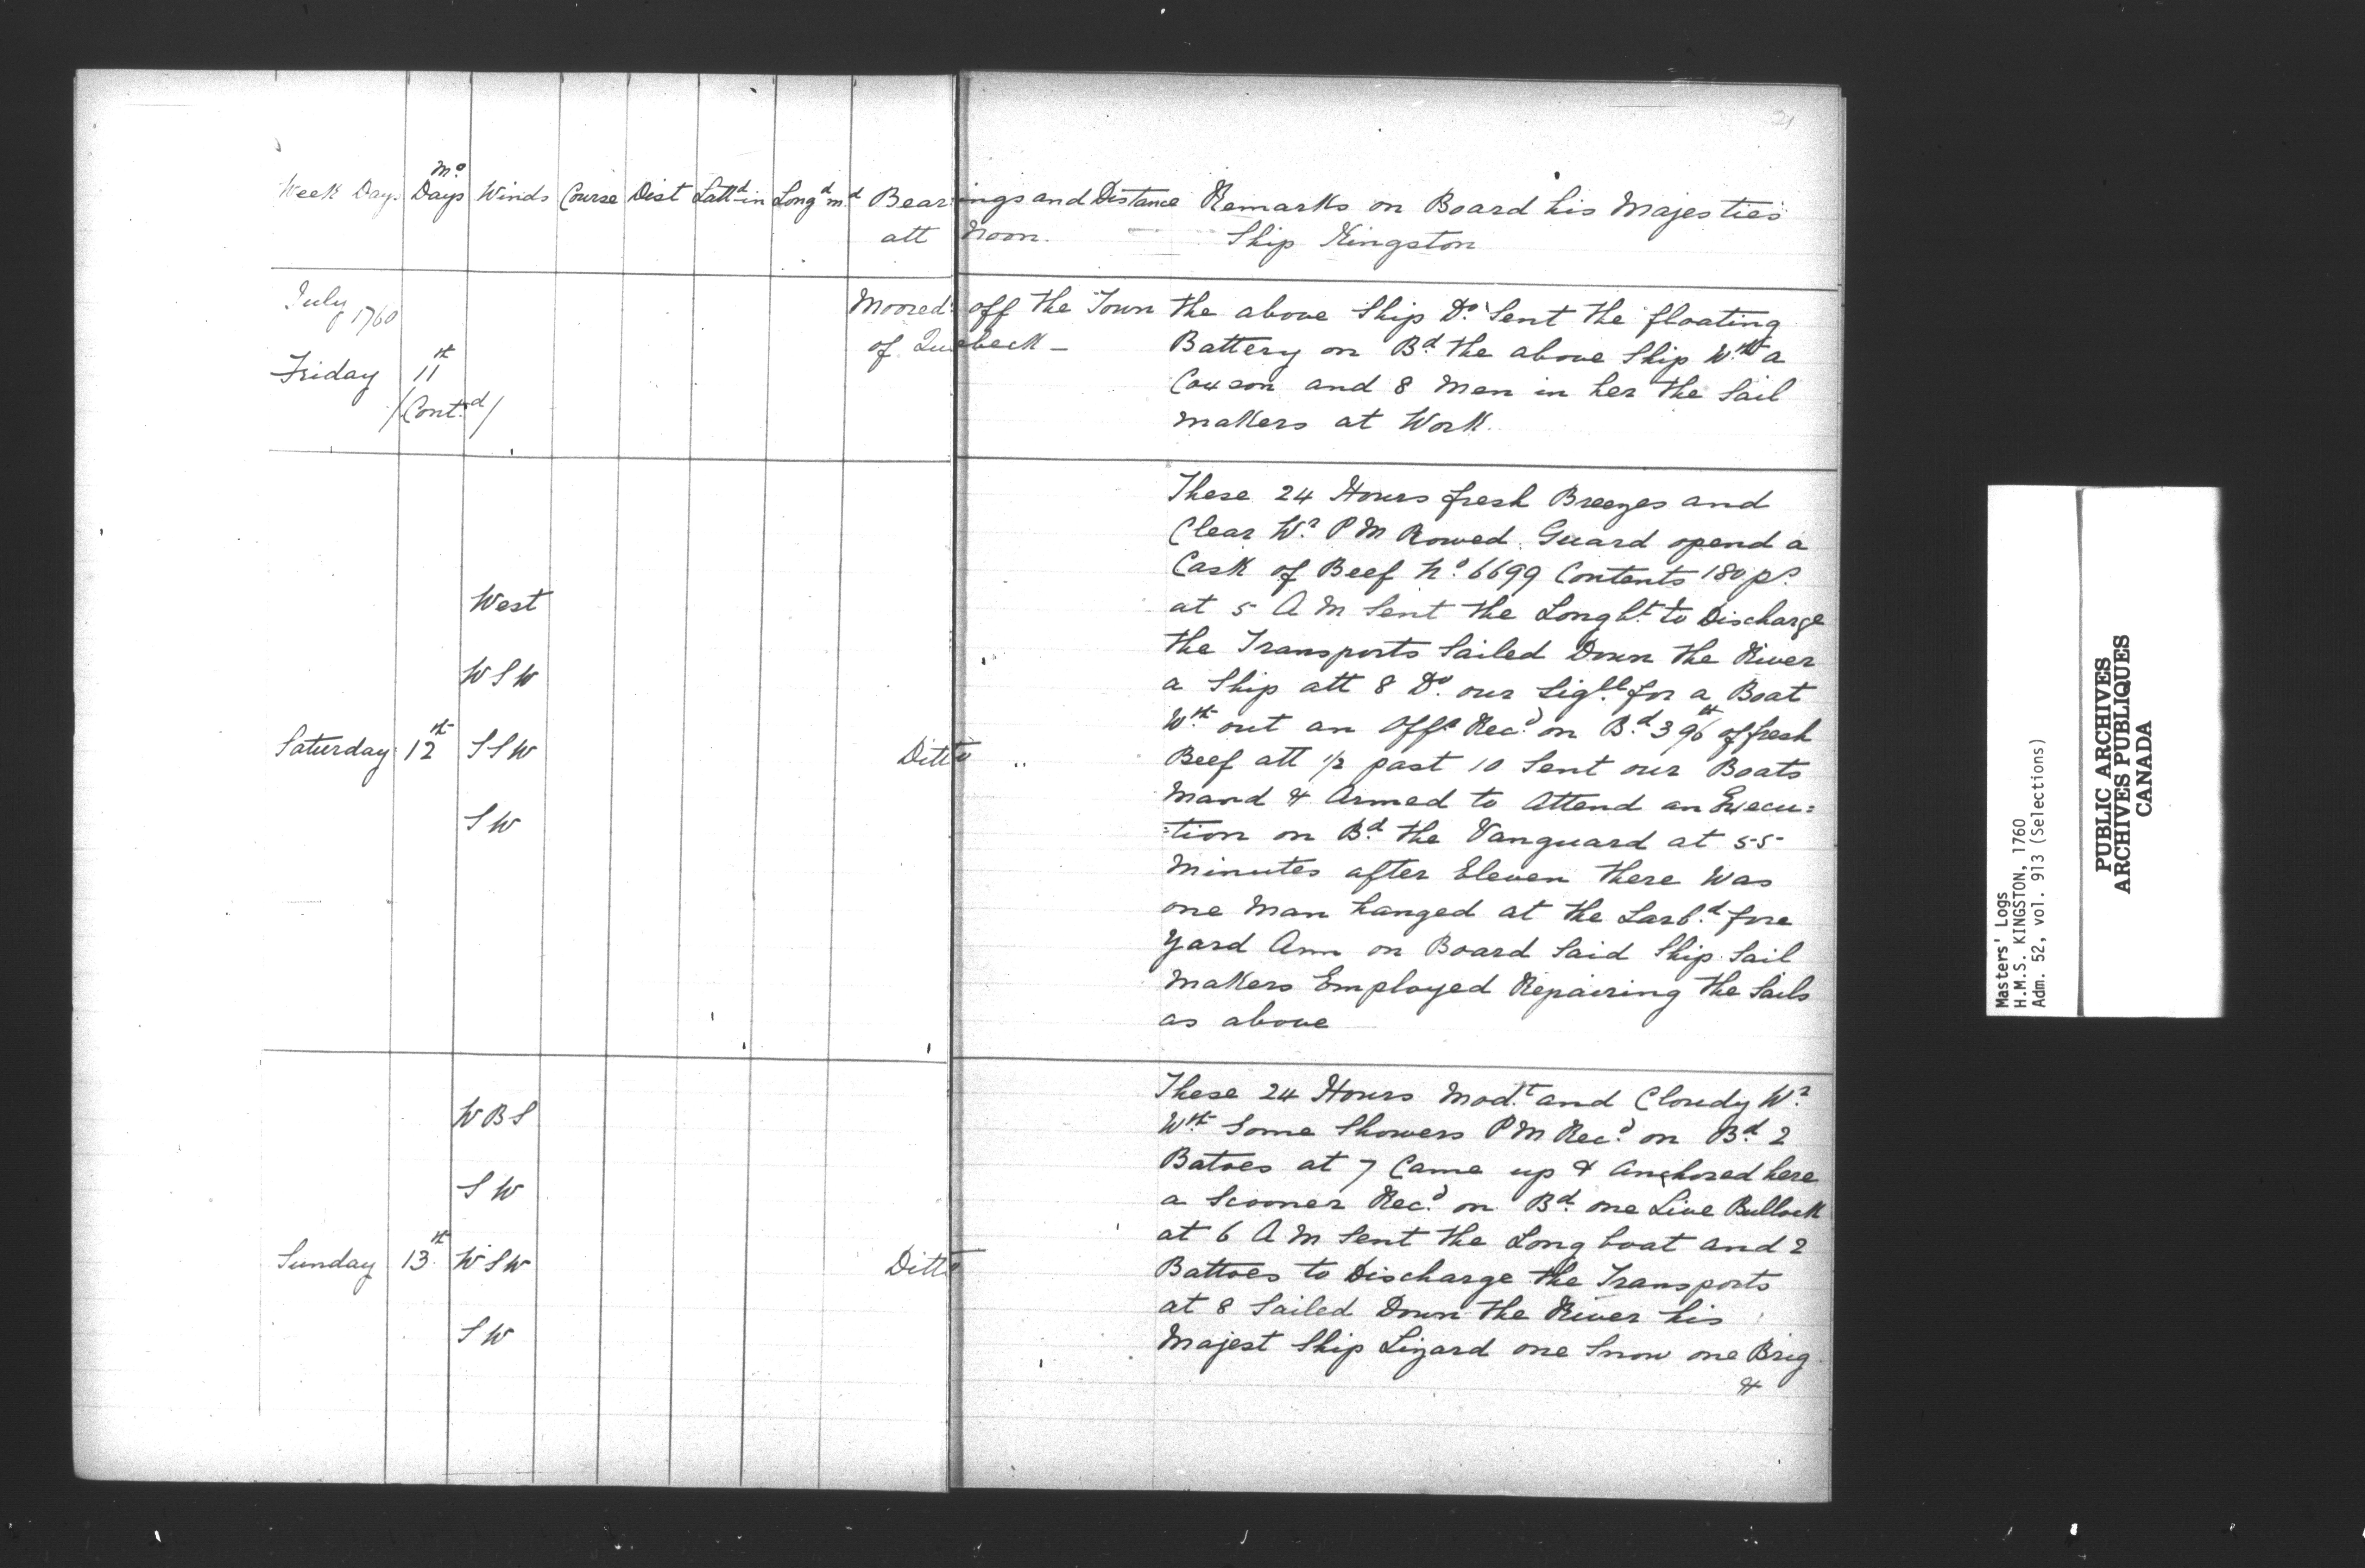 21
Week Days Mo. Days Winds Course Dist Lattd in Longd md Bearings and Distance att Noon. Remarks on Board his Majesties Ship Kingston
July 1760
Friday 11th (Contd)
Moored off the Town of Quebeck —
the above Ship Do. Sent the floating
Battery on Bd the above Ship Wth a
Coxson and 8 Men in her the Sail
makers at Work.
Saturday 12th
West
WSW
SSW
SW
Ditto "
These 24 Hours fresh Breezes and
Clear Wr. PM Rowed Guard opend a
Cask of Beef No. 6699 Contents 180 ps
at 5 AM Sent the Longbt. to Discharge
the Transports Sailed Down the River
a Ship att 8 Do. our Sigll for a Boat
Wth out an Offr Recd on Bd 396 of fresh
Beef att 1/2 past 10 Sent our Boats
Mand & Armed to Attend an Execu=
=tion on Bd the Vanguard at 55
Minutes after Eleven there Was
one Man hanged at the Larbd fore
Yard Arm on Board Said Ship Sail
Makers Employed Repairing the Sails
as above
Sunday 13th
WBS
SW
WSW
SW
Ditto
These 24 Hours Modt and Cloudy Wr.
Wth Some Showers PM Recd on Bd 2
Batoes at 7 Came up & Anchored here
a Scooner Recd on Bd one Live Bullock
at 6 AM Sent the Long boat and 2
Battoes to Discharge the Transports
at 8 Sailed Down the River his
Majest Ship Lizard one Snow one Brig
&
Masters' Logs
H.M.S. KINGSTON, 1760
Adm. 52, vol. 913 (Selections)
PUBLIC ARCHIVES
ARCHIVES PUBLIQUES
CANADA